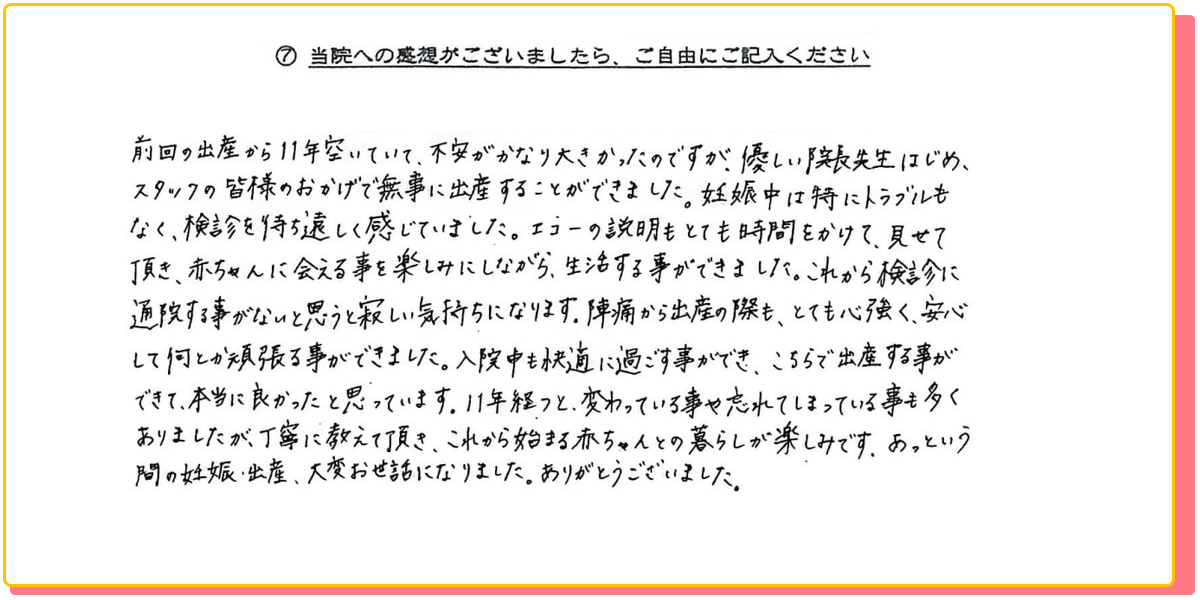 ⑦ 当院への感想がございましたら、ご自由にご記入ください
前回の出産から11年空いていて、不安がかなり大きかったのですが、優しい院長先生はじめ、
スタッフの皆様のおかげで無事に出産することができました。妊娠中は特にトラブルも
なく、検診を待ち遠しく感じていました。エコーの説明もとても時間をかけて、見せて
頂き、赤ちゃんに会える事を楽しみにしながら、生活する事ができました。これから検診に
通院する事がないと思うと寂しい気持ちになります。陣痛から出産の際も、とても心強く、安心
して何とか頑張る事ができました。入院中も快適に過ごす事ができ、こちらで出産する事が
できて、本当に良かったと思っています。11年経つと、変わっている事や忘れてしまっている事も多く
ありましたが、丁寧に教えて頂き、これから始まる赤ちゃんとの暮らしが楽しみです。あっという
間の妊娠・出産、大変お世話になりました。ありがとうございました。